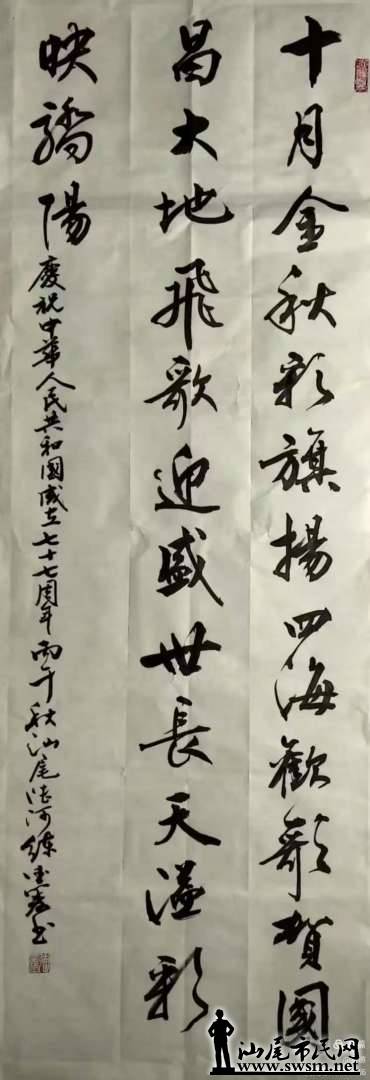 十月金秋彩旗揚四海歡歌賀國
昌大地飛歌迎盛世長天溢彩
映驕陽
慶祝中華人民共和國成立七十七周年丙午秋汕尾陸河練
書
汕尾市民网
www.swsm.net